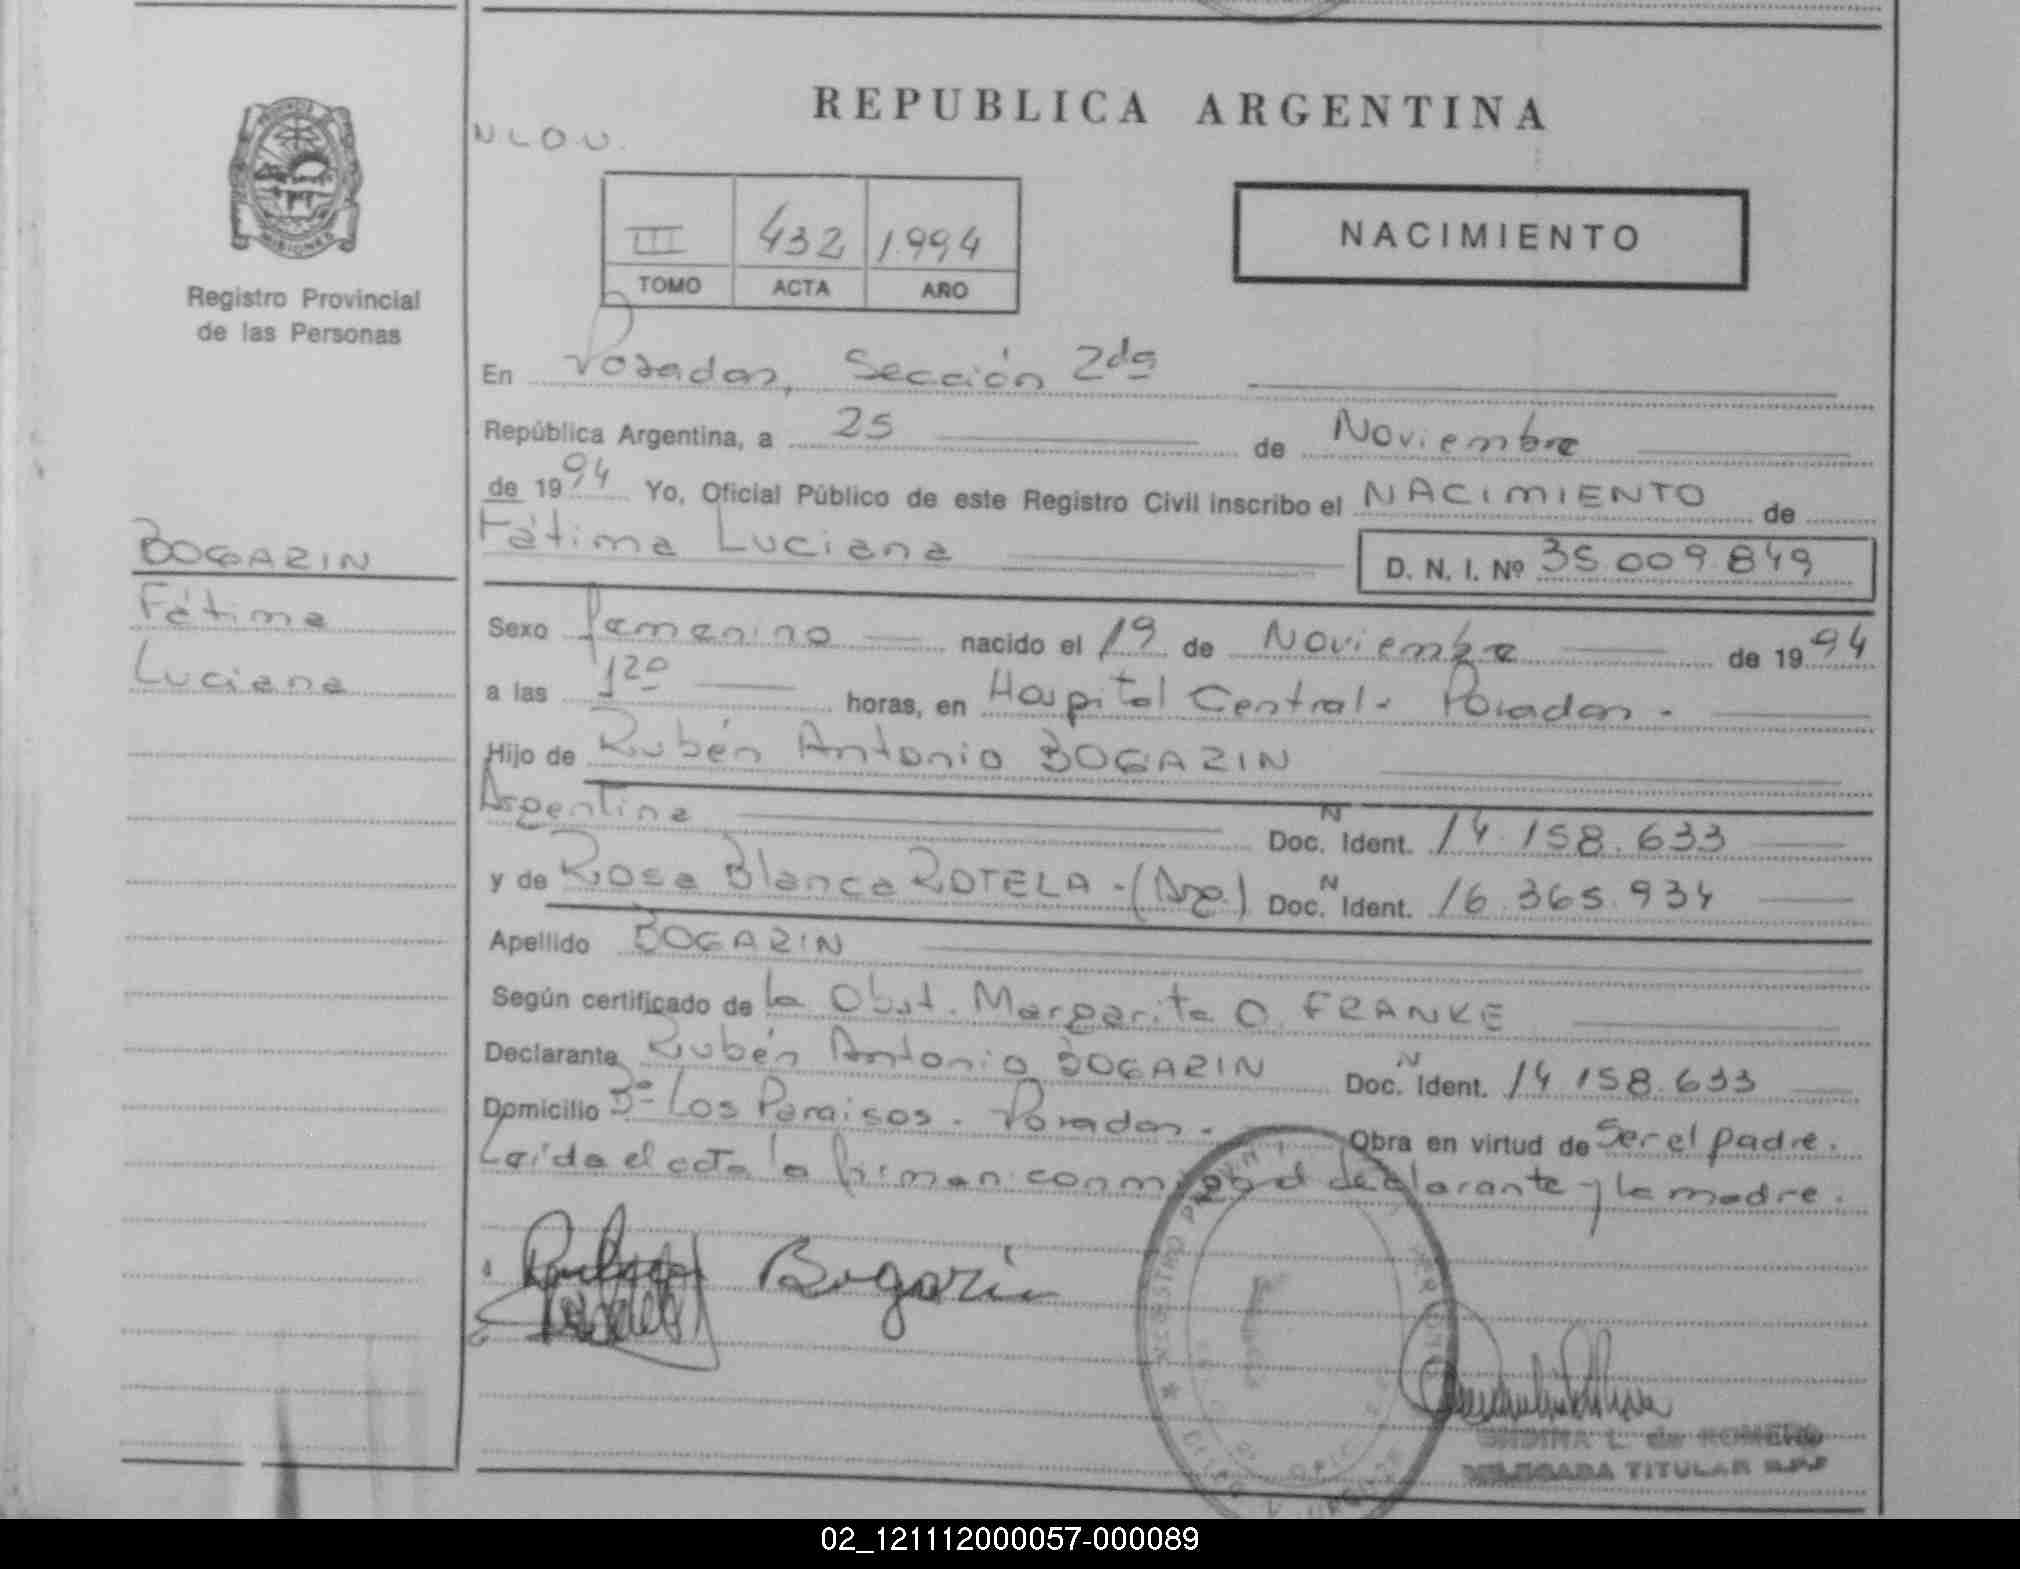 REPUBLICA ARGENTINA
N L O U.
III 432 1.994
TOMO ACTA AÑO
NACIMIENTO
MISIONES
Registro Provincial
de las Personas
BOGARIN
Fátima
Luciana
En Posadas, Sección 2da
República Argentina, a 25 de Noviembre
de 1994 Yo, Oficial Público de este Registro Civil inscribo el NACIMIENTO de
Fátima Luciana D. N. I. Nº 35.009.849
Sexo femenino nacido el 19 de Noviembre de 1994
a las 1²⁰ horas, en Hospital Central - Posadas -
Hijo de Rubén Antonio BOGARIN
Argentina Doc. N Ident. 14.158.633
y de Rosa Blanca ROTELA - (Arg.) Doc. N Ident. 16.365.934
Apellido BOGARIN
Según certificado de la Obst. Margarita O. FRANKE
Declarante Rubén Antonio BOGARIN Doc. N Ident. 14.158.633
Domicilio Bº Los Paraisos - Posadas - Obra en virtud de Ser el padre.
Leída el acta la firman conmigo el declarante y la madre.
Bogarin
ONDINA L. de ROMERO
DELEGADA TITULAR R.P.P
02_121112000057-000089